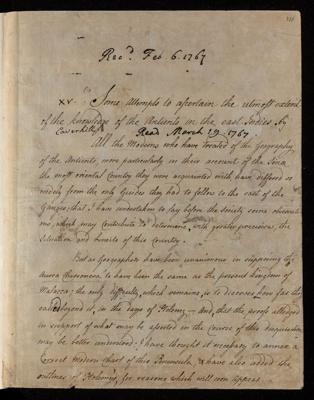 Rec.d Feb 6. 1767
XV. Some attempts to ascertain the utmost extent
of the knowledge of the Antients in the east Indies. by
Caverhill
Read March 19 1767.
All the Moderns who have treated of the Geography
of the Antients, more particularly in their account of the Sinæ
the most oriental Country they were acquainted with, have differed so
widely from the only Guides they had to follow to the east of the
Ganges, that I have undertaken to lay before the Society some observati
ons, which may contribute to determine, with greater precision, the
Situation and limits of this Country.
But as Geographers have been unanimous in supposing the
Aurea Chersonesus, to have been the same as the present Kingdom of
Malacca; the only difficulty, which remains, is to discover how far they
beyond it, in the Days of Ptolemy — And, that the proofs alledged
in support of what may be asserted in the course of this disquisition
may be better understood; I have thought it necessary to annex a
Correct Modern Chart of this Peninsula, & have also added the
outlines of Ptolemy's, for reasons which will soon appear